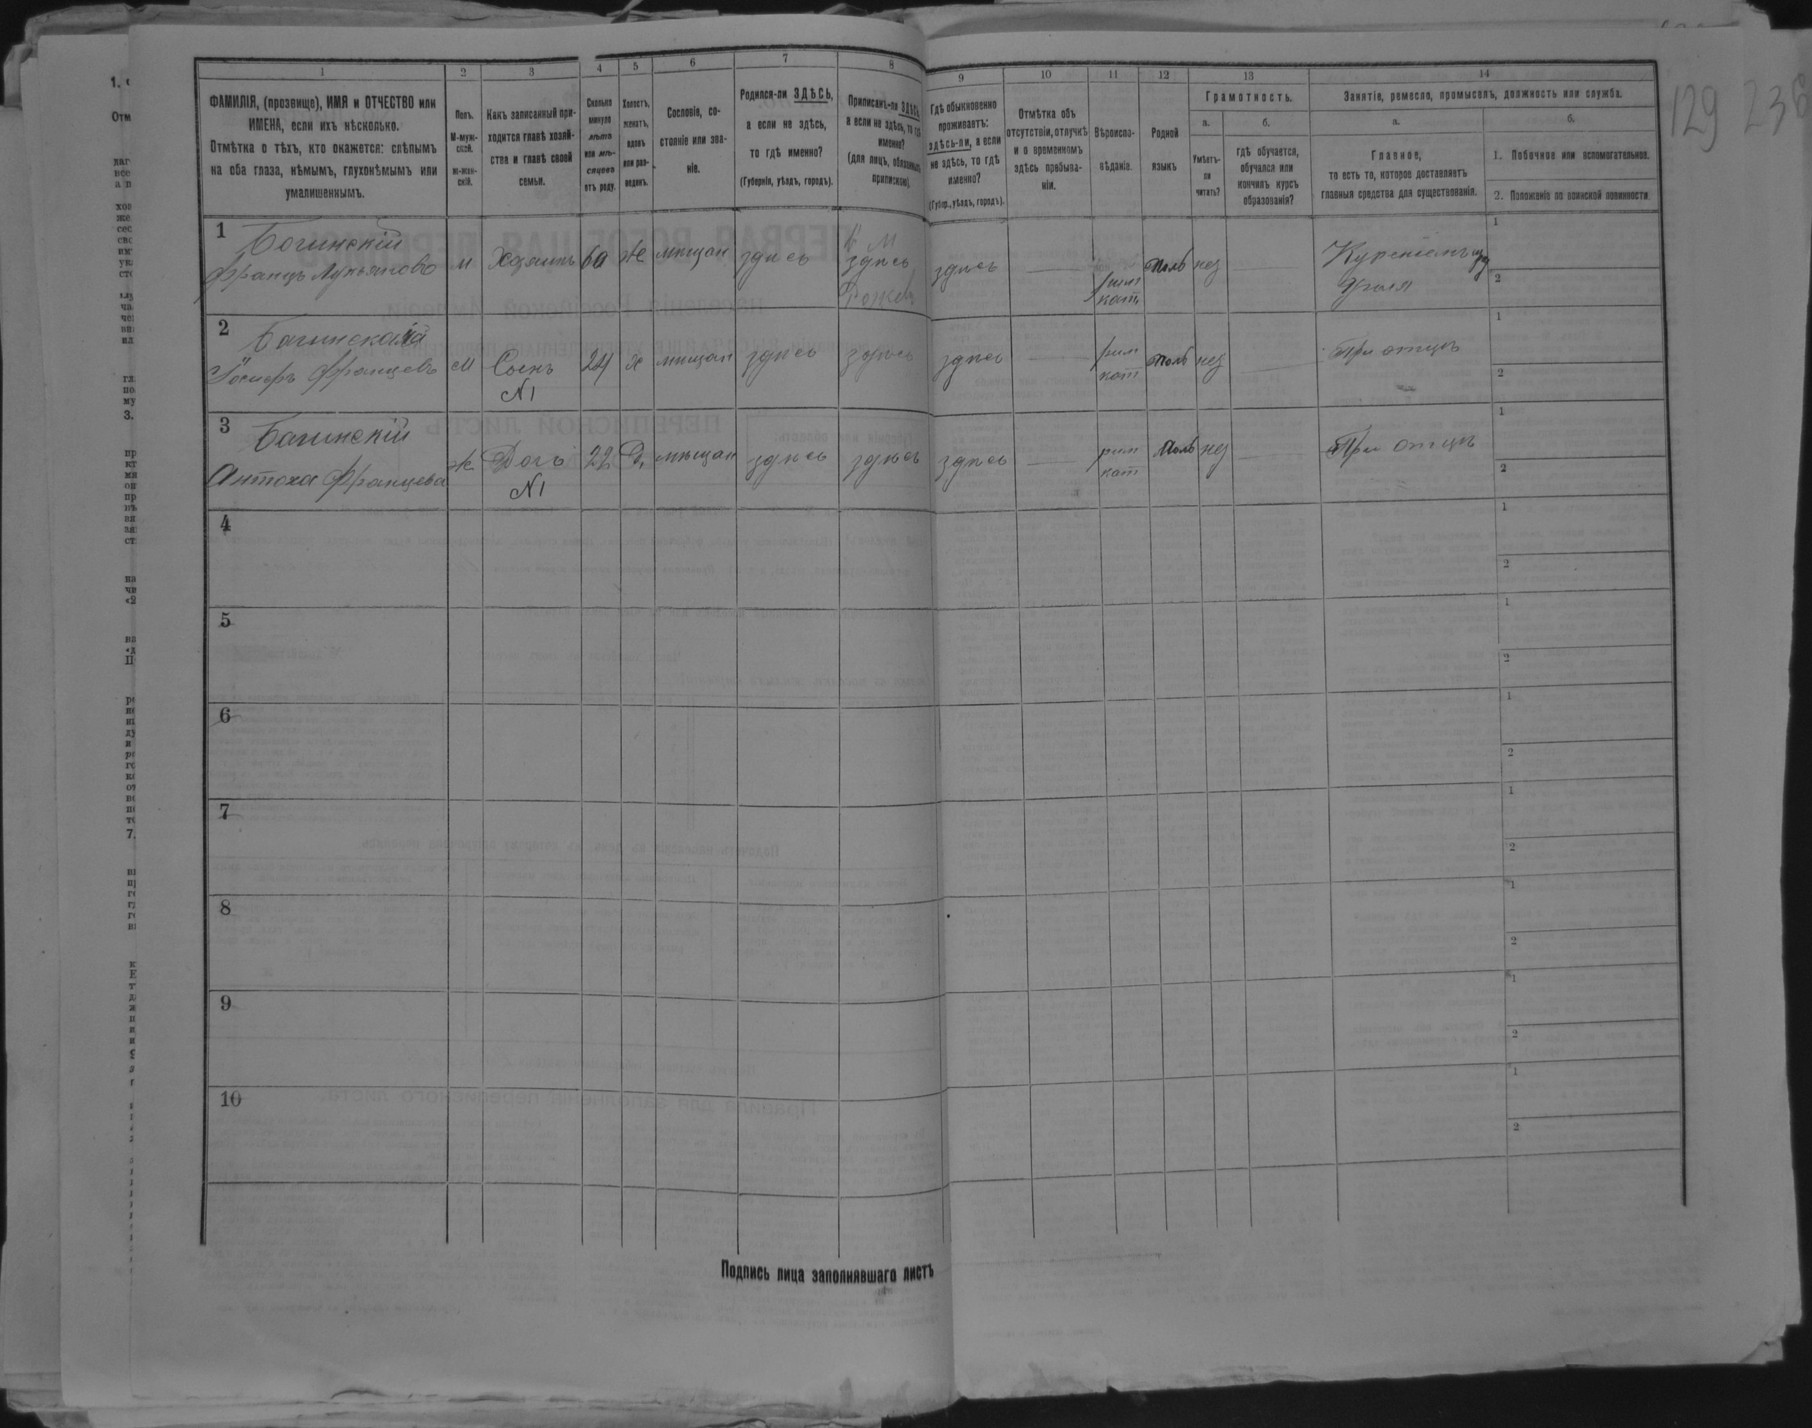 129 236
1
2
3
4
5
6
7
8
9
10
11
12
13
14
ФАМИЛІЯ, (прозвище), ИМЯ и ОТЧЕСТВО или
ИМЕНА, если ихъ нѣсколько.
Отмѣтка о тѣхъ, кто окажется: слѣпымъ
на оба глаза, нѣмымъ, глухонѣмымъ или
умалишеннымъ.
Полъ.
М-муж-
ской.
Ж-жен-
скій.
Какъ записанный при-
ходится главѣ хозяй-
ства и главѣ своей
семьи.
Сколько
минуло
лѣтъ
или мѣ-
сяцевъ
отъ роду.
Холостъ,
женатъ,
вдовъ
или раз-
веденъ.
Сословіе, со-
стояніе или зва-
ніе.
Родился-ли ЗДѢСЬ,
а если не здѣсь,
то гдѣ именно?
(Губернія, уѣздъ, городъ).
Приписанъ-ли ЗДѢСЬ,
а если не здѣсь, то гдѣ
именно?
(для лицъ, обязанныхъ
припискою).
Гдѣ обыкновенно
проживаетъ:
здѣсь-ли, а если
не здѣсь, то гдѣ
именно?
(Губер., уѣздъ, городъ).
Отмѣтка объ
отсутствіи, отлучкѣ
и о временномъ
здѣсь пребыва-
ніи.
Вѣроиспо-
вѣданіе.
Родной
языкъ
Грамотность.
а.
Умѣетъ-
ли
читать?
б.
гдѣ обучается,
обучался или
кончилъ курсъ
образованія?
Занятіе, ремесло, промыселъ, должность или служба.
а.
Главное,
то есть то, которое доставляетъ
главныя средства для существованія.
б.
1. Побочное или вспомогательное.
2. Положеніе по воинской повинности.
1 Богинскій
Францъ Лукьяновъ м Хозяинъ 60 ж мѣщан здѣсь здѣсь здѣсь — рим кат поль нез —
1
2
2
Іосифъ Францевъ м Сынъ 24 х мѣщан здѣсь здѣсь здѣсь — рим кат поль нез — При отцѣ
N1
1
2
3 Багинскій
Францева ж Дочь 22 Д. мѣщан здѣсь здѣсь здѣсь — рим кат поль нез — При отцѣ
N1
1
2
4
1
2
5
1
2
6
1
2
7
1
2
8
1
2
9
1
2
10
1
2
Подпись лица заполнявшаго листъ